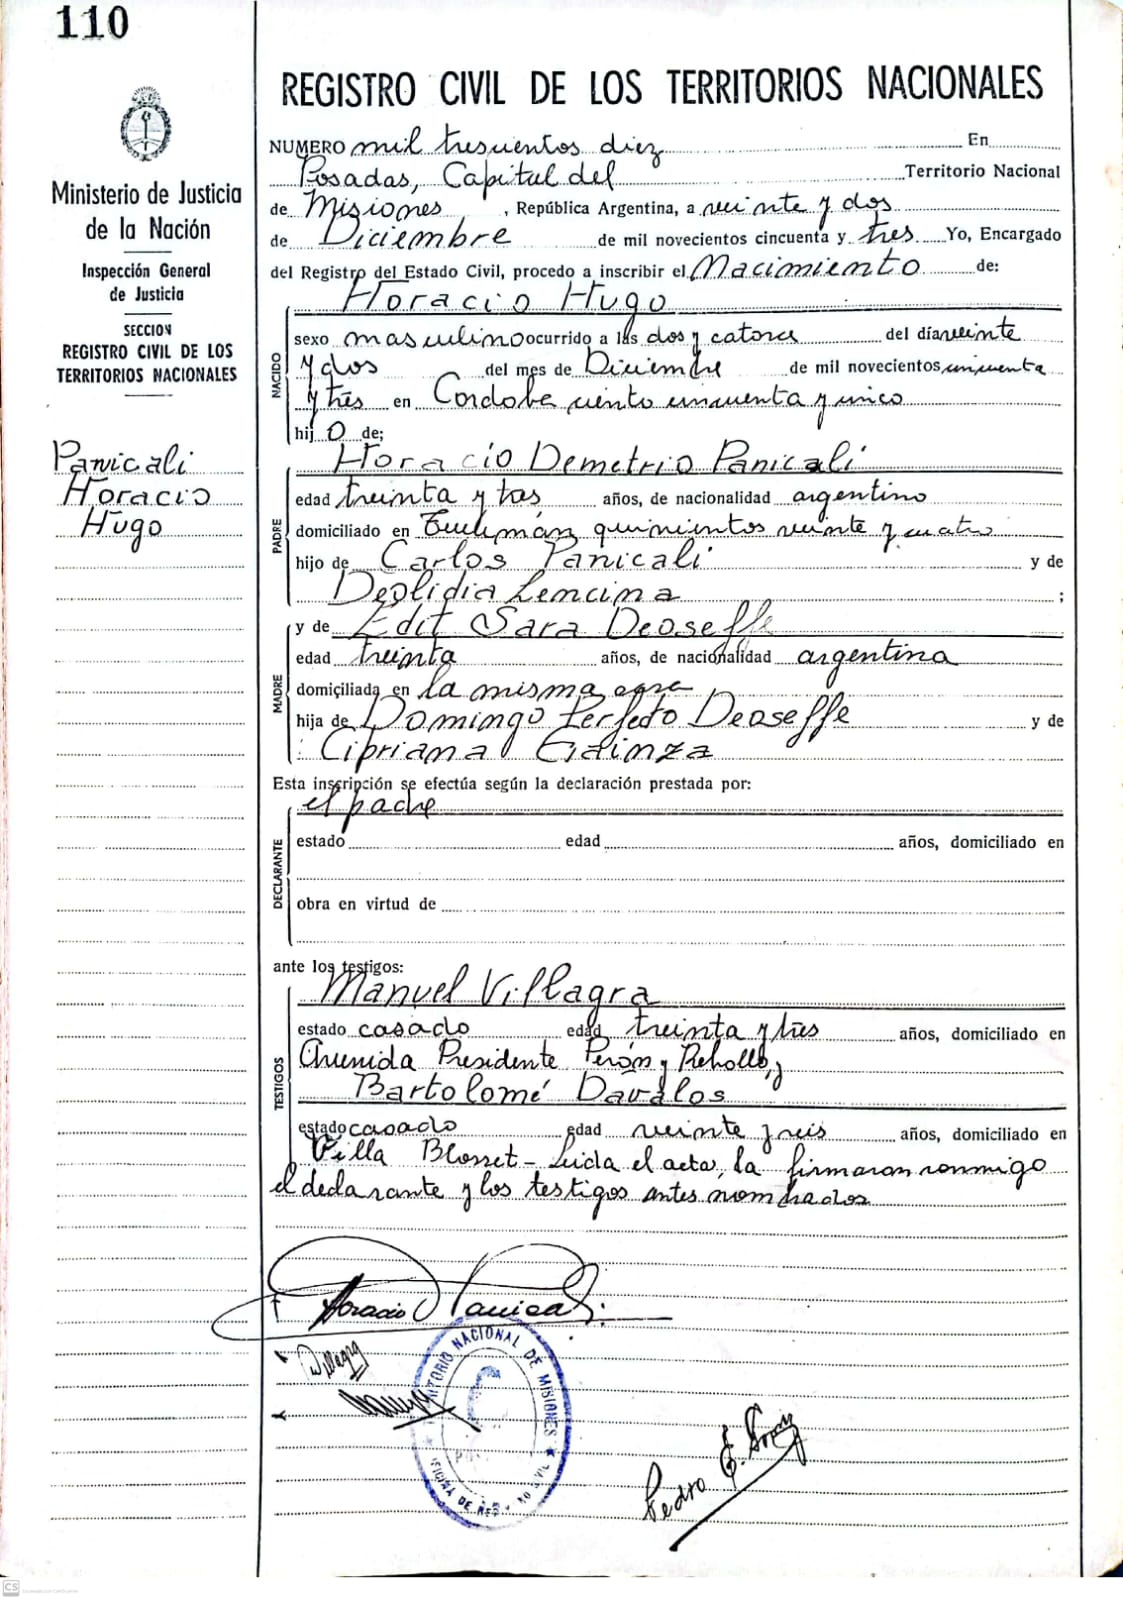 110
Ministerio de Justicia
de la Nación
Inspección General
de Justicia
SECCION
REGISTRO CIVIL DE LOS
TERRITORIOS NACIONALES
Panicali
Horacio
Hugo
REGISTRO CIVIL DE LOS TERRITORIOS NACIONALES
NUMERO mil trescientos diez En
Posadas, Capital del Territorio Nacional
de Misiones, República Argentina, a veinte y dos
de Diciembre de mil novecientos cincuenta y tres Yo, Encargado
del Registro del Estado Civil, procedo a inscribir el Nacimiento de:
Horacio Hugo
NACIDO
sexo masculino ocurrido a las dos y catorce del día veinte
y dos del mes de Diciembre de mil novecientos cincuenta
y tres en Cordoba ciento cincuenta y cinco
hijo de;
Horacio Demetrio Panicali
PADRE
edad treinta y tres años, de nacionalidad argentino
domiciliado en Tucumán quinientos veinte y cuatro
hijo de Carlos Panicali y de
Deolidia Lencina ;
y de Edit Sara Deoseffe
MADRE
edad treinta años, de nacionalidad argentina
domiciliada en la misma casa
hija de Domingo Perfecto Deoseffe y de
Cipriana Gainza
Esta inscripción se efectúa según la declaración prestada por:
el padre
DECLARANTE
estado edad años, domiciliado en
obra en virtud de
ante los testigos:
Manuel Villagra
TESTIGOS
estado casado edad treinta y tres años, domiciliado en
Avenida Presidente Perón y Rebollo, y
Bartolomé Dávalos
estado casado edad veinte y seis años, domiciliado en
Villa Blosset - Leida el acta, la firmaron conmigo
el declarante y los testigos antes nombrados
Horacio Panicali
Villagra
TERRITORIO NACIONAL DE MISIONES
OFICINA DE REGISTRO CIVIL
Pedro E.
CS